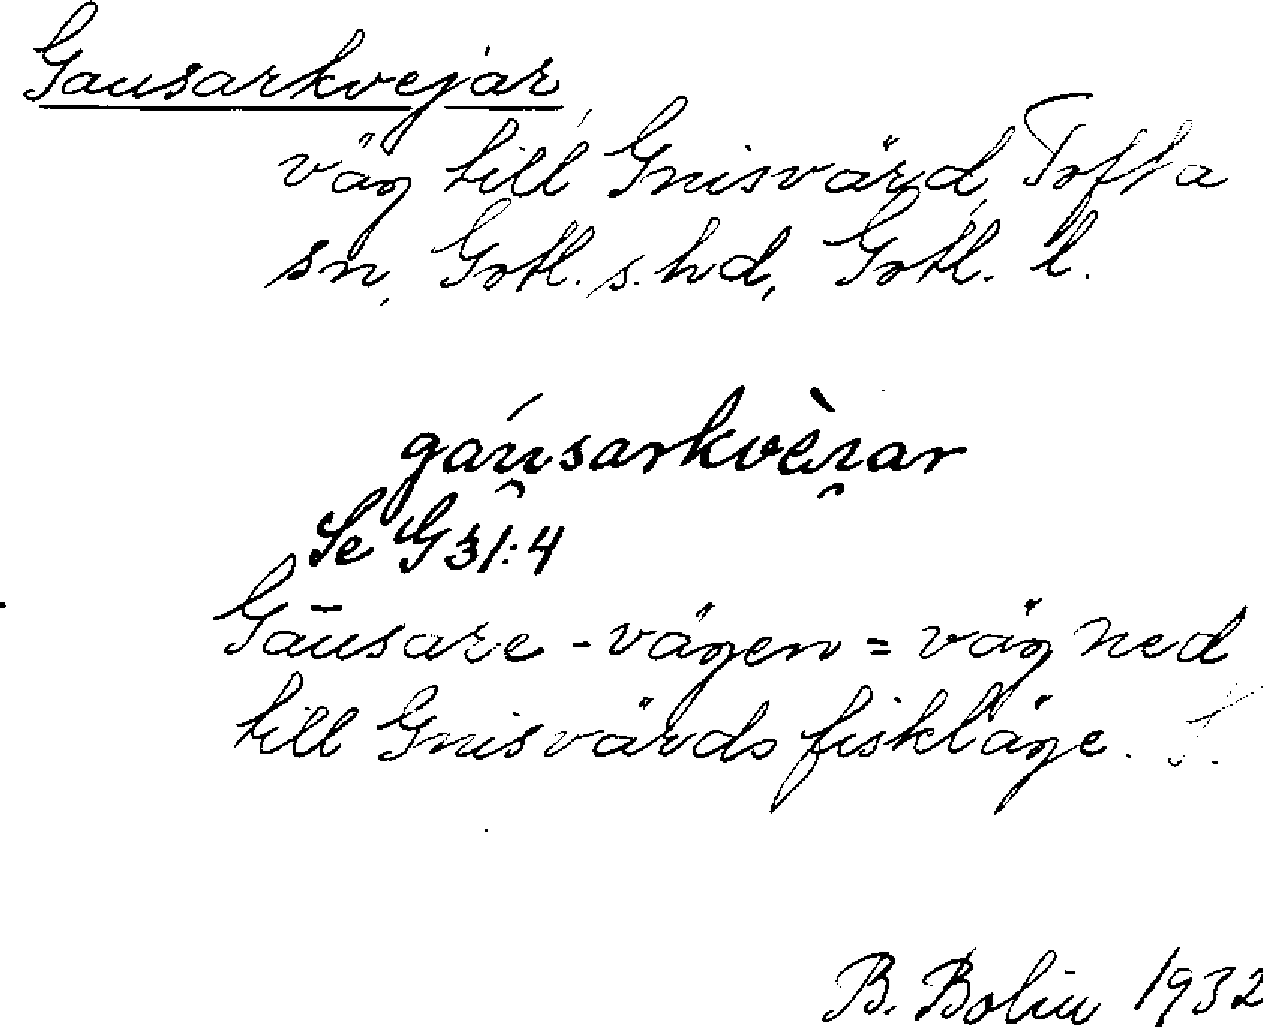 Gausarkvejar,
väg till Gnisvärd, Tofta
sn, Gotl. s. hd, Gotl. l.
gáu̯sarkvèi̯ar
Se G 31:4
Gāusare - vägen = väg ned
till Gnisvärds fiskläge. S.
B. Bolin 1932